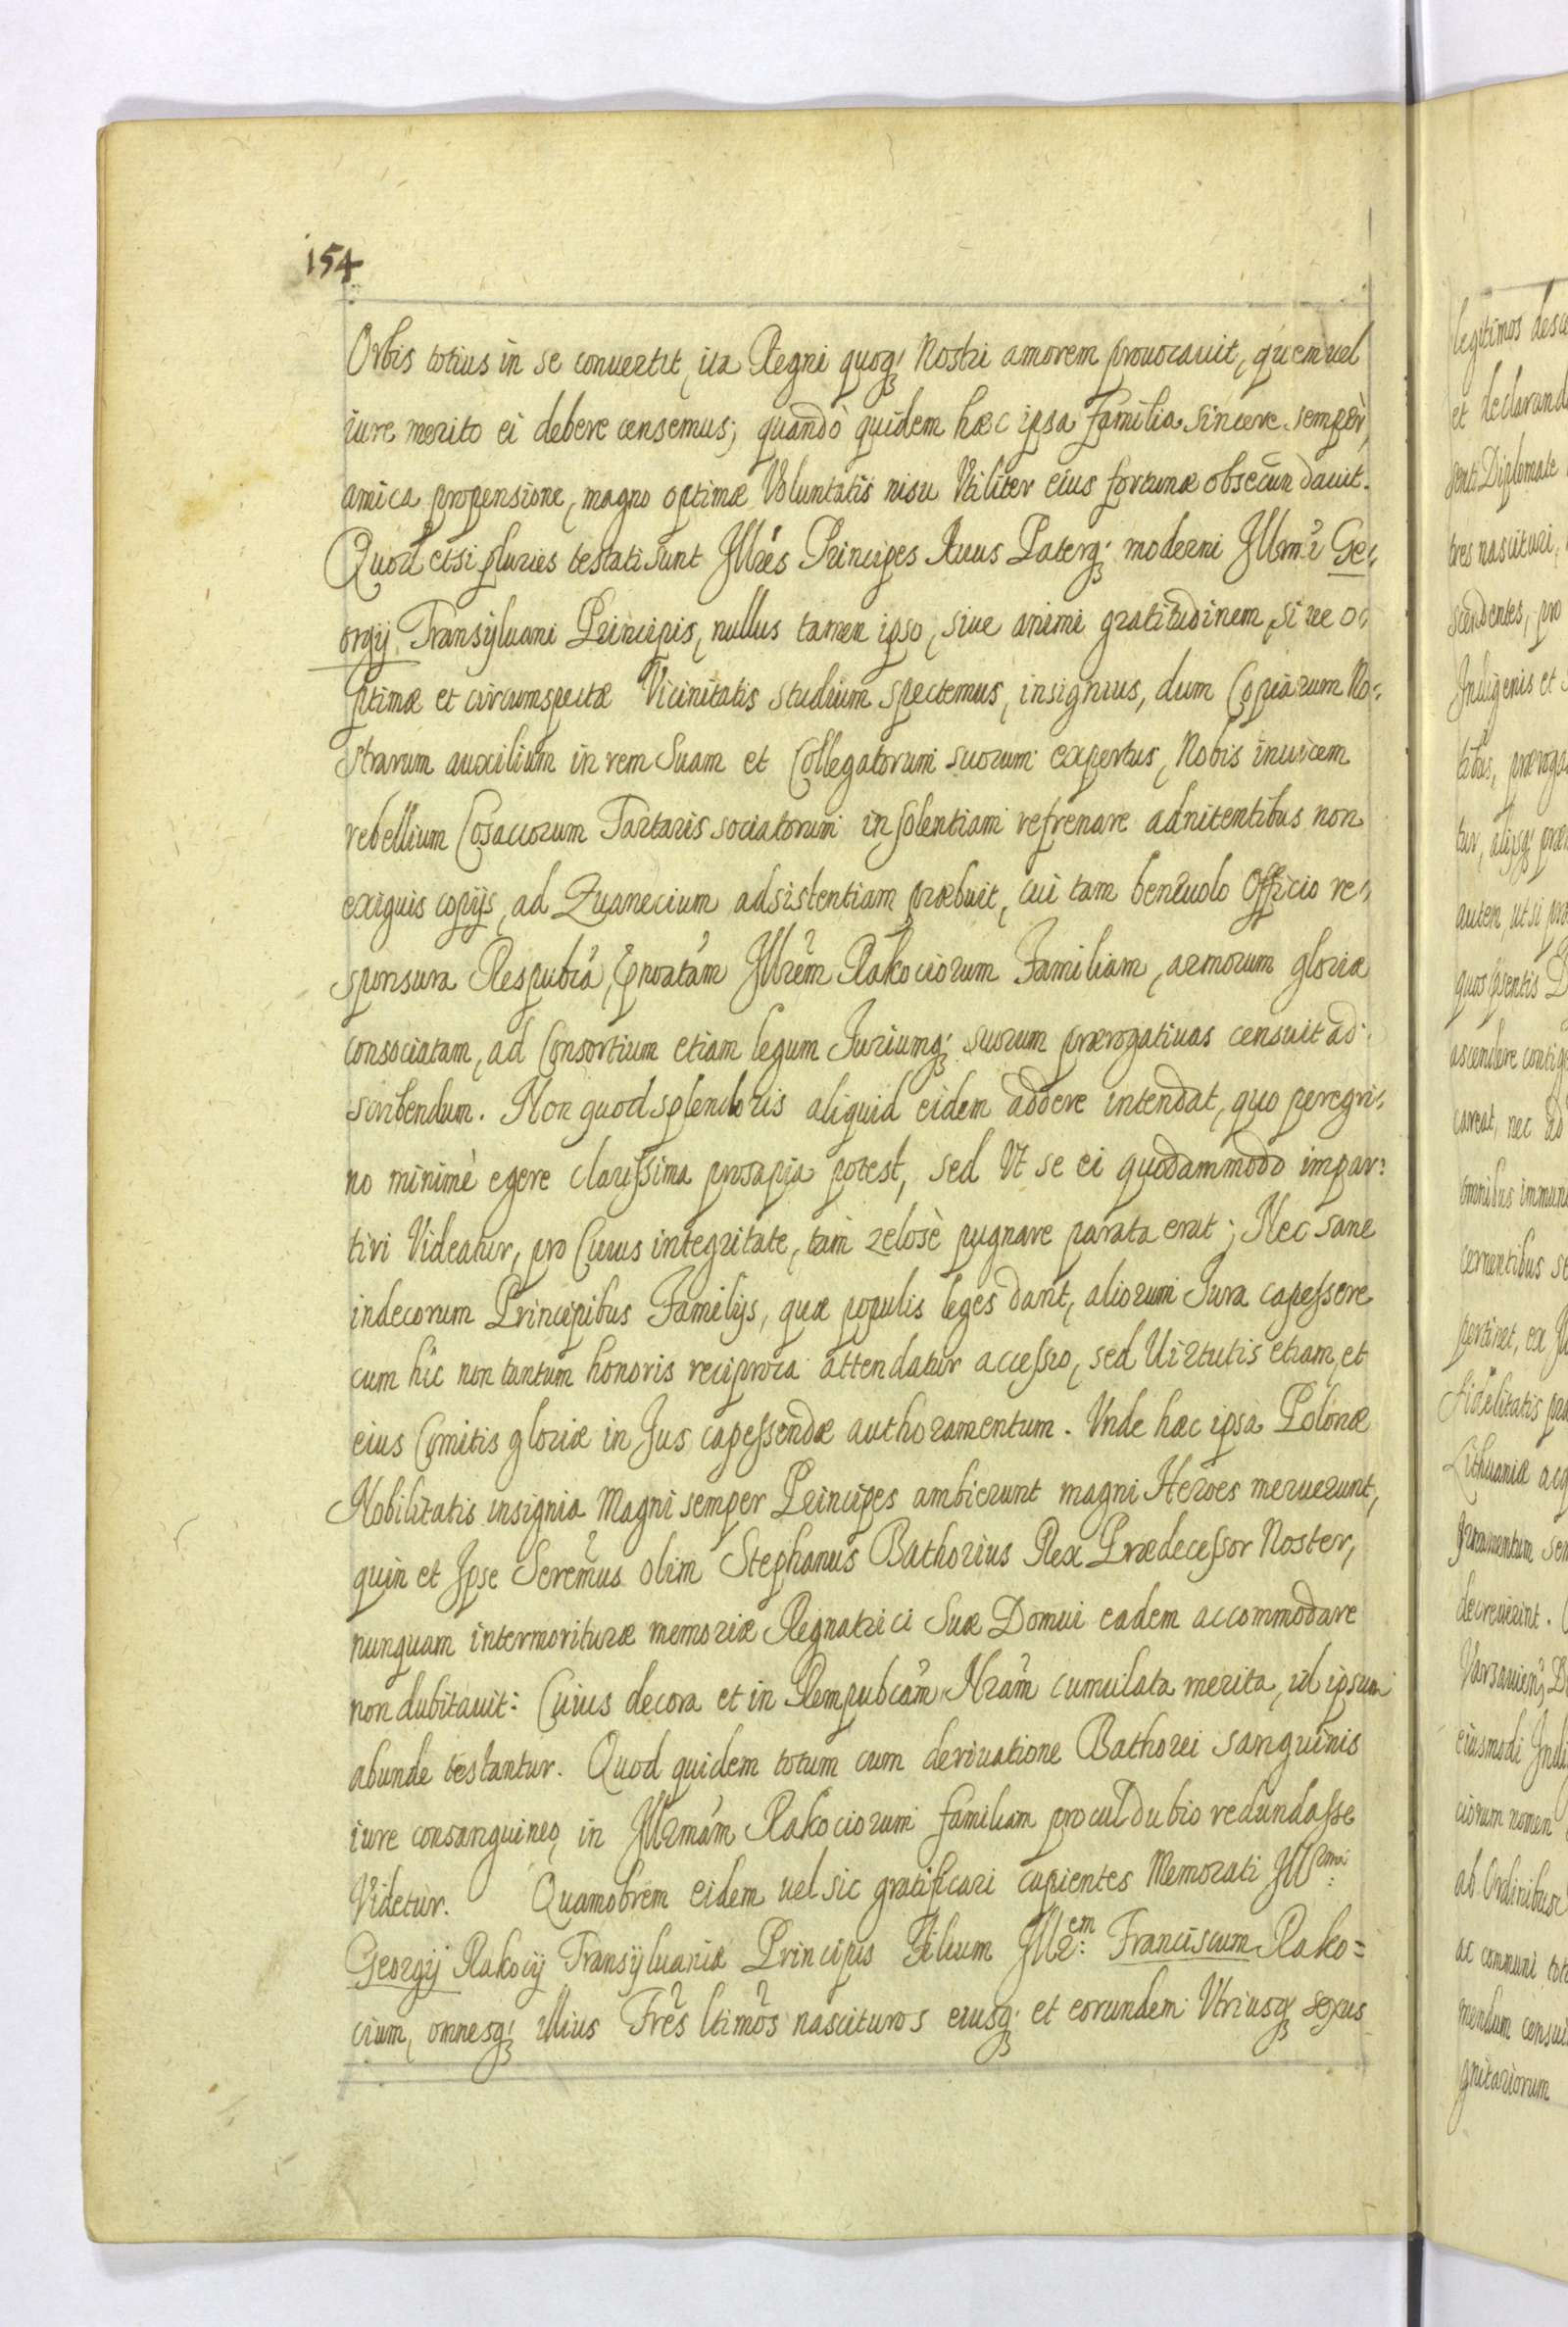 154
Orbis totius in se convertit, ita Regni quoq; Nostri amorem prouocauit, quem uel
iure merito ei debere censemus; quandò quidem hæc ipsa familia sincere semper,
amica propensione, magno optimæ Voluntatis nisu Vtiliter eius fortunæ obsecundauit.
Quod etsi pluries testati sunt Illrẽs Principes Auus Paterq; moderni Illrmi Ge-
orgij Transyluani Principis, nullus tamen ipso, siue animi gratitudinem, siue o-
ptimæ et circumspectæ Vicinitatis studium spectemus, insignius, dum Copiarum No-
strarum auxilium in rem Suam et Collegatorum suorum expertus, Nobis inuicem
rebellium Cosaccorum Tartaris sociatorum insolentiam refrenare adnitentibus non
exiguis copijs, ad Zuanecium adsistentiam præbuit, cui tam beneuolo Officio re-
sponsura Respubca, Illrem Rakociorum Familiam, armorum gloria
consociatam, ad Consortium etiam legum Juriumq; suorum prærogatiuas censuit ad-
scribendum. Non quod splendoris aliquid eidem addere intendat, quo peregri-
no minimè egere clarissima prosapia potest, sed Vt se ei quodammodo impar-
tiri Videatur, pro Cuius integritate, tàm zelosè pugnare parata erat; Nec sane
indecorum Principibus Familijs, quæ populis leges dant, aliorum Jura capessere
cum hic non tantum honoris reciproca attendatur accessio, sed Uirtutis etiam, et
eius Comitis gloriæ in Jus capessendæ authoramentum. Vnde hæc ipsa Polonæ
Nobilitatis insignia Magni semper Principes ambierunt magni Heroes meruerunt,
quin et Ipse Seremus olim Stephanus Bathorius Rex Prædecessor Noster,
nunquam intermorituræ memoriæ Regnatrici Suæ Domui eadem accommodare
non dubitauit: Cuius decora et in Rempubcam Nram cumulata merita, id ipsum
abunde testantur. Quod quidem totum cum deriuatione Bathorei sanguinis
iure consanguineo, in Illrmam Rakociorum familiam procul dubio redundasse
Videtur. Quamobrem eidem uel sic gratificari cupientes Memorati Illrmi:
Georgij Rakocij Transyluaniæ Principis Filium Illr:em Franciscum Rako=
cium, omnesq; illius Fres ltimos nascituros eiusq; et eorundem Vtriusq; sexus
legitimos
et
Diplomate
tres nascituri,
scendentes, pro
Indigenis et
autem, ut si
quos
ascendere
careat, nec ad
omnibus
pertinet, ex
fidelitatis
Lithuaniæ
Juramentum
decreuerint.
eiusmodi
ciorum nomen
ab Ordinibus
ac communi
mendum
gnitariorum